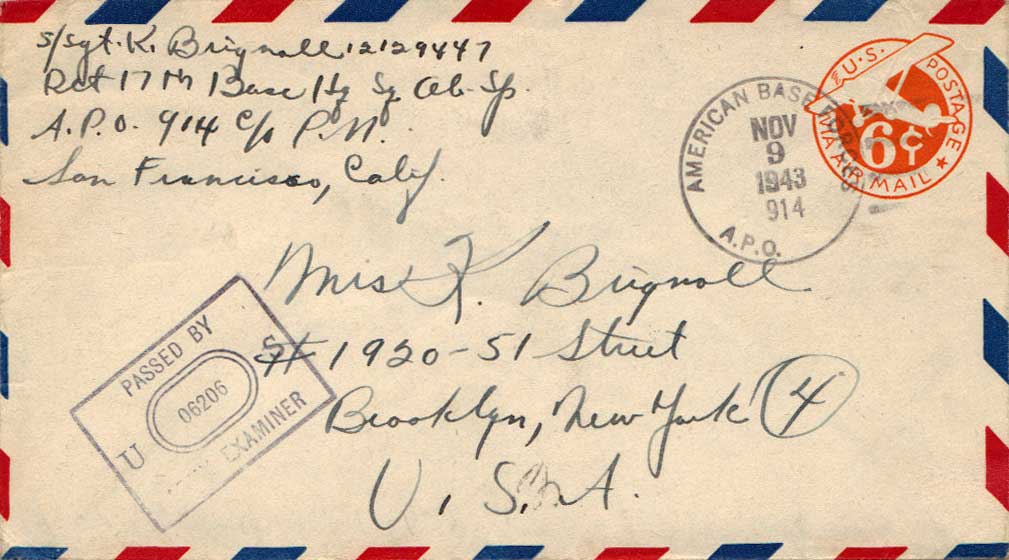 S/Sgt. K. Brignoll 12129447
Det 17th Base Hq Sq Ab. Sp.
A.P.O. 914 c/o P.M.
San Francisco, Calif.
AMERICAN BASE FORCES
NOV
9
1943
914
A.P.O.
U.S. POSTAGE
6¢
VIA AIR MAIL
Mrs K. Brignoll
# 1920-51 Street
Brooklyn, New York 4
U.S.A.
PASSED BY
U 06206 S
ARMY EXAMINER